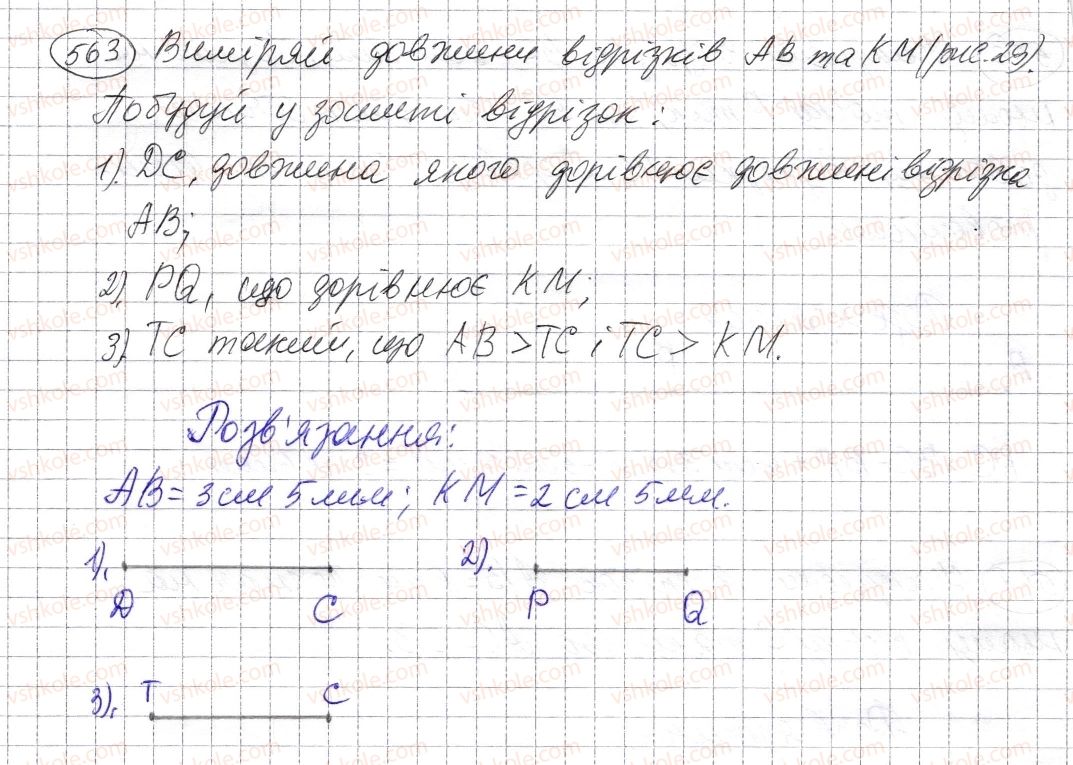 563 Виміряй довжини відрізків AB та KM (рис. 29).
Побудуй у зошиті відрізок:
1). DC, довжина якого дорівнює довжині відрізка
AB;
2). PQ, що дорівнює KM;
3). TC такий, що AB > TC і TC > KM.
Розв'язання:
AB = 3 см 5 мм; KM = 2 см 5 мм.
1). 2).
D C P Q
3). T C